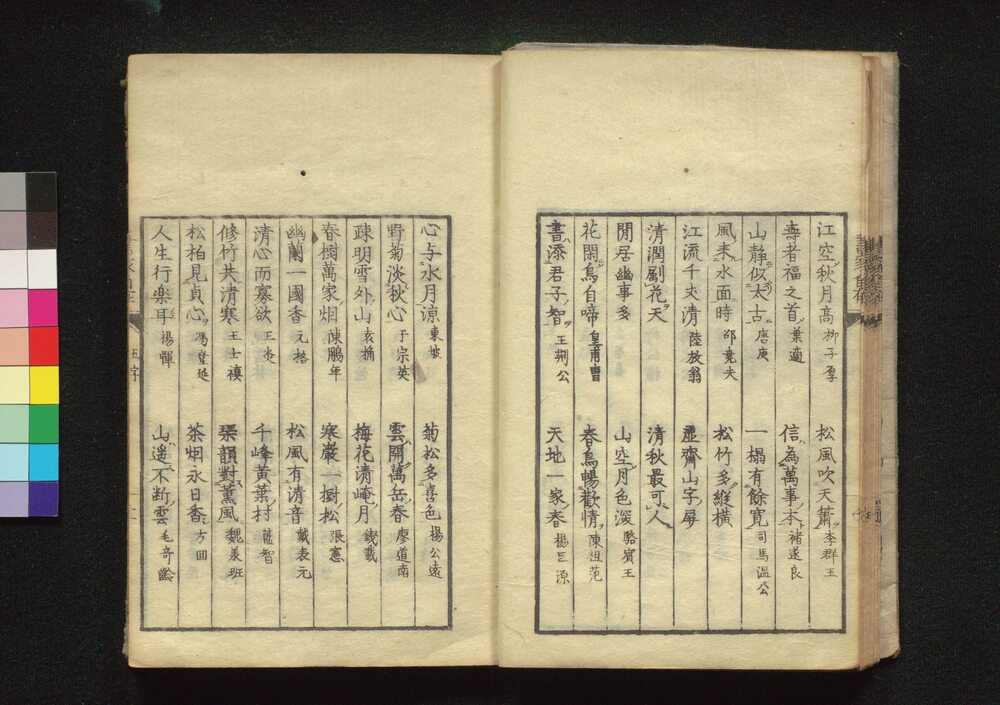 江空秋月高 柳子厚
松風吹天簫 李群玉
壽者福之首 葉適
信為萬事本 褚遂良
山静似太古 唐庚
一榻有餘寛 司馬温公
風来水面時 邵尭夫
松竹多縦横
江流千丈清 陸放翁
虚齋山字屏
清潤劚花天
清秋最可人
閒居幽事多
山空月色深 駱賓王
花閑鳥自啼 皇甫曽
春鳥暢歡情 陳祖范
書添君子智 王荊公
天地一家春 楊三源
心与水月凉 東坡
菊松多喜色 楊公遠
野菊淡秋心 于宗英
雲開萬岳春 廖道南
疎明雪外山 袁桷
梅花清晻月 錢載
春樹萬家烟 陳鵬年
寒巖一樹松 張憲
幽蘭一國香 元格
松風有清音 戴表元
清心而寡欲 王炎
千峰黄葉村 薩智
修竹共清寒 王士禛
琴韻對薫風 魏兼班
松柏見貞心 馮登延
茶烟永日香 方回
人生行楽耳 楊惲
山遥不断雲 毛奇齡
五字